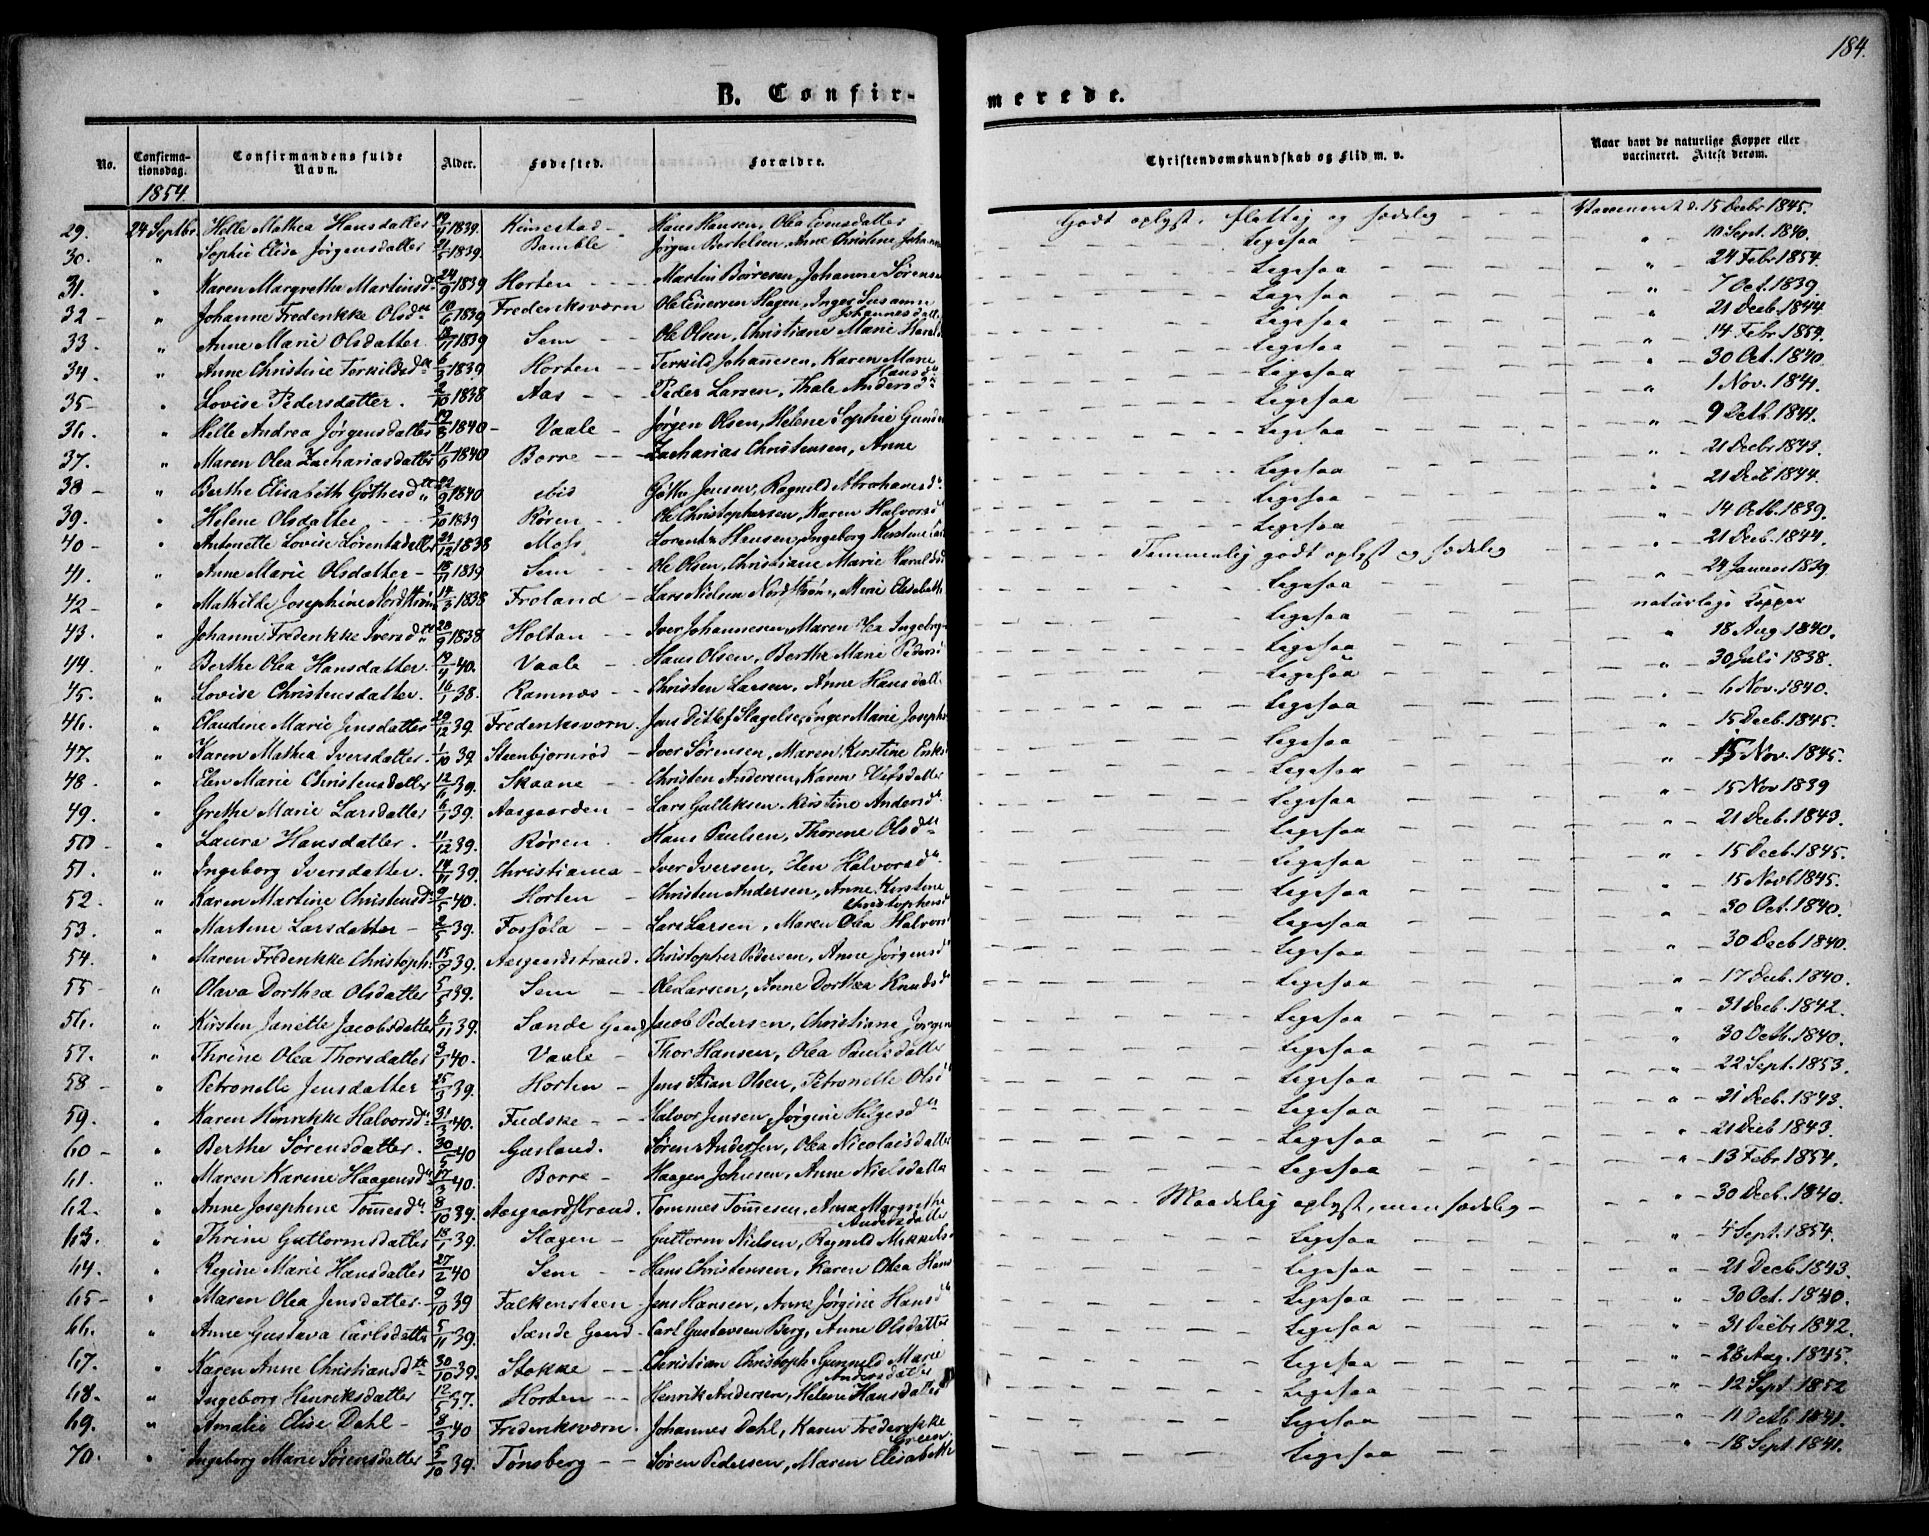 184.
B. Confirmerede.
No. Confirmationsdag. Confirmandens fulde Navn. Alder. Fødested. Forældre. Christendomskundskab og Flid m. v. Naar havt de naturlige Kopper eller vaccineret. Attest derom.
1854.
29. 24 Septbr Helle Mathea Hansdatter 1839. Hans Hansen, Olea Evensdatter Godt oplyst, flittig og sædelig Vaccineret d. 15 Decbr 1845.
30. " Sophie Elise Jørgensdatter 1839. Bamble Jørgen Bertelsen, Anne Christine Johann Ligesaa " 10 Sept. 1840.
31. " Karen Margrethe Martinsd. 24/9 1839 Horten Martin Børresen, Johanne Sørens Ligesaa " 24 Febr 1854.
32 " Johanne Fredrikke Olsdtr 10/6 1839 Fredriksværn Ole Einersen Hagen, Inger Susanne Johannesdatt Ligesaa " 7 Oct. 1839.
33. " Anne Marie Olsdatter 1839 Sem Ole Olsen, Christiane Marie Haralds Ligesaa " 21 Decb 1844.
34. " Anne Christine Terkildsdtr 6/3 1839. Horten Terkild Johannesen, Karen Marie Hansdtr Ligesaa " 14 Febr. 1854.
35 " Lovise Pedersdatter. 2/10 1838 Aas Peder Larsen, Thale Andersdtr Ligesaa " 30 Oct. 1840.
36. " Helle Andrea Jørgensdatter 19/3 1840 Vaale Jørgen Olsen, Helene Sophie Gunder Ligesaa " 1 Nov. 1841.
37. " Maren Olea Zachariasdatter 11/9 1840 Borre Zacharias Christensen, Anne Ligesaa " 9 Octb. 1841.
38 " Berthe Elisabeth Gøthesdtr 22/9 1840 ibid Gøthe Jensen, Ragnild Abrahamsd. Ligesaa " 21 Decbr 1843.
39. " Helene Olsdatter 3/10 1839 Røren Ole Christophersen, Karen Halvorsd Ligesaa " 21 Decb 1844.
40 " Antonette Lovise Lorentsdatter 21/12 1838 Moss Lorents Hansen, Ingeborg Kirstine Ligesaa " 14 Octb. 1839.
41. " Anne Marie Olsdatter 18/11 1839 Sem Ole Olsen, Christiane Marie Haraldsd Temmelig godt oplyst og sædelig " 21 Decb. 1844.
42 " Mathilde Josephine Nordstrøm 14/3 1838 Froland Lars Nielsen Nordstrøm, Marie Elisabeth Ligesaa " 24 Januar 1839.
43. " Johanne Fredrikke Iversdtr 28/9 1838 Holtan Iver Johannesen, Maren Olea Ingebrg Ligesaa naturlige Kopper
44. " Berthe Olea Hansdatter. 19/4 40. Vaale Hans Olsen, Berthe Marie Pedersd Ligesaa " 18 Aug 1840.
45. " Lovise Christensdatter. 16/1 38. Ramnæs Christen Larsen, Anne Hansdatt. Ligesaa " 30 Juli 1838.
46. " Claudine Marie Jensdatter 20/12 39. Fredriksværn. Jens Ditlef Slagelse, Inger Marie Josephs Ligesaa " 6 Nov. 1840.
47. " Karen Mathea Iversdatter. 1/10 39. Steenbjørnrød Iver Sørensen, Maren Kirstine Eriks Ligesaa " 15 Decb. 1845.
48. " Elen Marie Christensdatter 12/6 39. Skaane Christen Andersen, Karen Ligesaa " 15 Nov. 1845.
49. " Grethe Marie Larsdatter 6/1 39. Aasgaarden Lars Gulliksen, Kirstine Andersd. Ligesaa " 15 Nov 1839
50 " Laura Hansdatter. 11/12 39. Røren. Hans Paulsen, Thorine Olsdtr Ligesaa " 21 Decb. 1843.
51. " Ingeborg Iversdatter. 14/11 39. Christiania Iver Iversen, Elen Halvorsdtr Ligesaa " 15 Decb. 1845.
52. " Karen Martine Christensd. 9/5 40. Horten Christen Andersen, Anne Kirstine Christophersd Ligesaa " 15 Novb. 1845.
53. " Martine Larsdatter 2/5 39. Lars Larsen, Maren Olea Halvors Ligesaa " 30 Oct. 1840.
54. " Maren Fredrikke Christoph. 15/9 39. Aasgaardstrand. Christopher Pedersen, Anne Jørgensd Ligesaa " 30 Decb 1840.
55 " Olava Dorthea Olsdatter 5/5 39. Sem Ole Larsen, Anne Dorthea Knudsd Ligesaa " 17 Decb. 1840.
56. " Kirsten Janette Jacobsdatter 6/11 39. Sande Gaard Jacob Pedersen, Christiane Jørgen Ligesaa " 31 Decb. 1842.
57. " Thrine Olea Thorsdatter 3/1 40. Vaale Thor Hansen, Olea Paulsdatter Ligesaa " 30 Octb. 1840.
58 " Petronelle Jensdatter 25/3 39. Horten Jens Stian Olsen, Petronelle Olsd Ligesaa " 22 Sept. 1853.
59. " Karen Henrikke Halvorsd. 31/3 40. Halvor Jensen, Jørgine Helgesdtr Ligesaa " 21 Decb. 1843.
60 " Berthe Sørensdatter. 30/5 40 Gusland. Søren Andersen, Olea Nicolaisdatter Ligesaa " 21 Decb 1843.
61. " Maren Karine Haagensd. 17/3 40. Borre Haagen Johnsen, Anne Nielsdatter Ligesaa " 13 Febr 1854.
62. " Anne Josephine Tommesd. 8/10 39. Aasgaardstrand. Tommes Tommesen, Anna Margrethe Andersdatter Maadelig oplyst, men sædelig " 30 Decb. 1840.
63. " Thrine Guttormsdatter 18/1 39. Slagen Guttorm Nielsen, Regnild Mikkelsd Ligesaa " 4 Sept. 1854.
64. " Regine Marie Hansdatter 27/2 40 Sem Hans Christensen, Karen Olea Hans Ligesaa " 21 Decb. 1843.
65 " Maren Olea Jensdatter. 9/10 39 Falkensteen Jens Hansen, Anne Jørgine Hansd Ligesaa " 30 Oct. 1840.
66. " Anne Gustava Carlsdatter 5/11 39. Sande Gaard Carl Gustavsen Berg, Anne Olsdatter Ligesaa " 31 Decbr 1842.
67. " Karen Anne Christiansdtr 30/10 39. Stokke Christian Christoph. Gunnild Marie Andersdatter Ligesaa " 28 Aug. 1845.
68. " Ingeborg Henriksdatter 12/5 37. Horten Henrik Andersen, Helene Hansdatter Ligesaa " 12 Sept. 1852
69. " Amalie Elise Dahl 8/3 40 Fredriksværn. Johannes Dahl, Karen Frederikke Green Ligesaa " 11 Octb. 1841.
70. " Ingeborg Marie Sørensdatter 5/10 39. Tønsberg Søren Pedersen, Maren Elisabeth Ligesaa " 18 Sept. 1841.